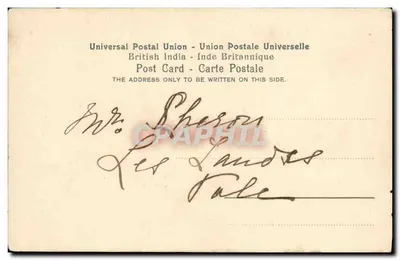 Universal Postal Union - Union Postale Universelle
British India - Inde Britannique
Post Card - Carte Postale
THE ADDRESS ONLY TO BE WRITTEN ON THIS SIDE.
Mr. Pheron
CPAPHIL
Les Landes
Vale